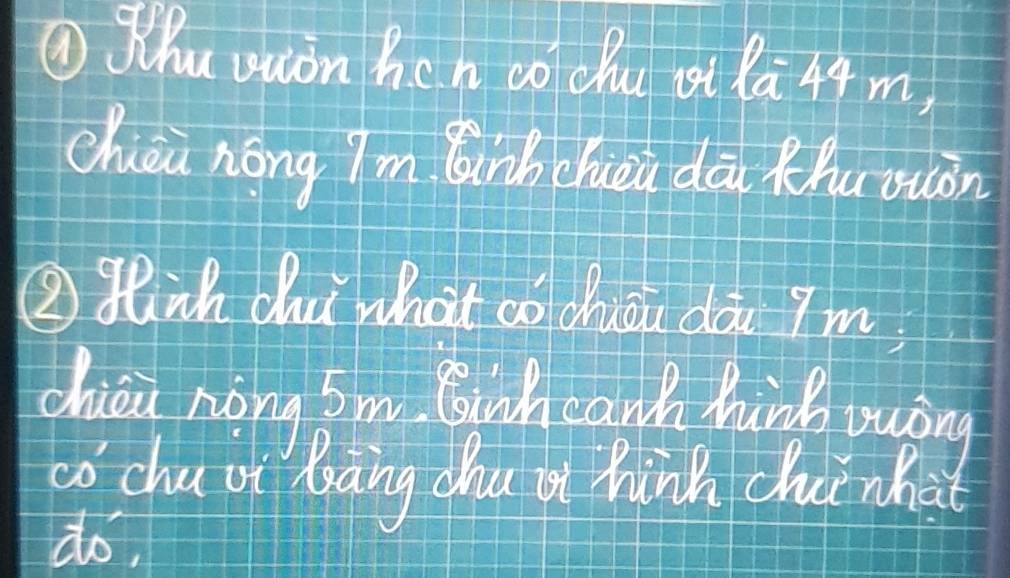 ① Khu vườn h.c.n có chu vi là 44 m,
chiều rộng 7m. Tính chiều dài khu vườn
② Hình chữ nhật có chiều dài 7m;
chiều rộng 5m. Tính cạnh hình vuông
có chu vi bằng chu vi hình chữ nhật
đó.